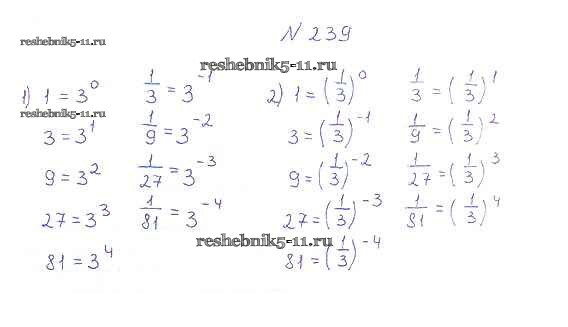 N 239
reshebnik5-11.ru
reshebnik5-11.ru
1) 1 = 3^0 1/3 = 3^-1 2) 1 = (1/3)^0 1/3 = (1/3)^1
reshebnik5-11.ru
3 = 3^1 1/9 = 3^-2 3 = (1/3)^-1 1/9 = (1/3)^2
9 = 3^2 1/27 = 3^-3 9 = (1/3)^-2 1/27 = (1/3)^3
27 = 3^3 1/81 = 3^-4 27 = (1/3)^-3 1/81 = (1/3)^4
reshebnik5-11.ru
81 = 3^4 81 = (1/3)^-4